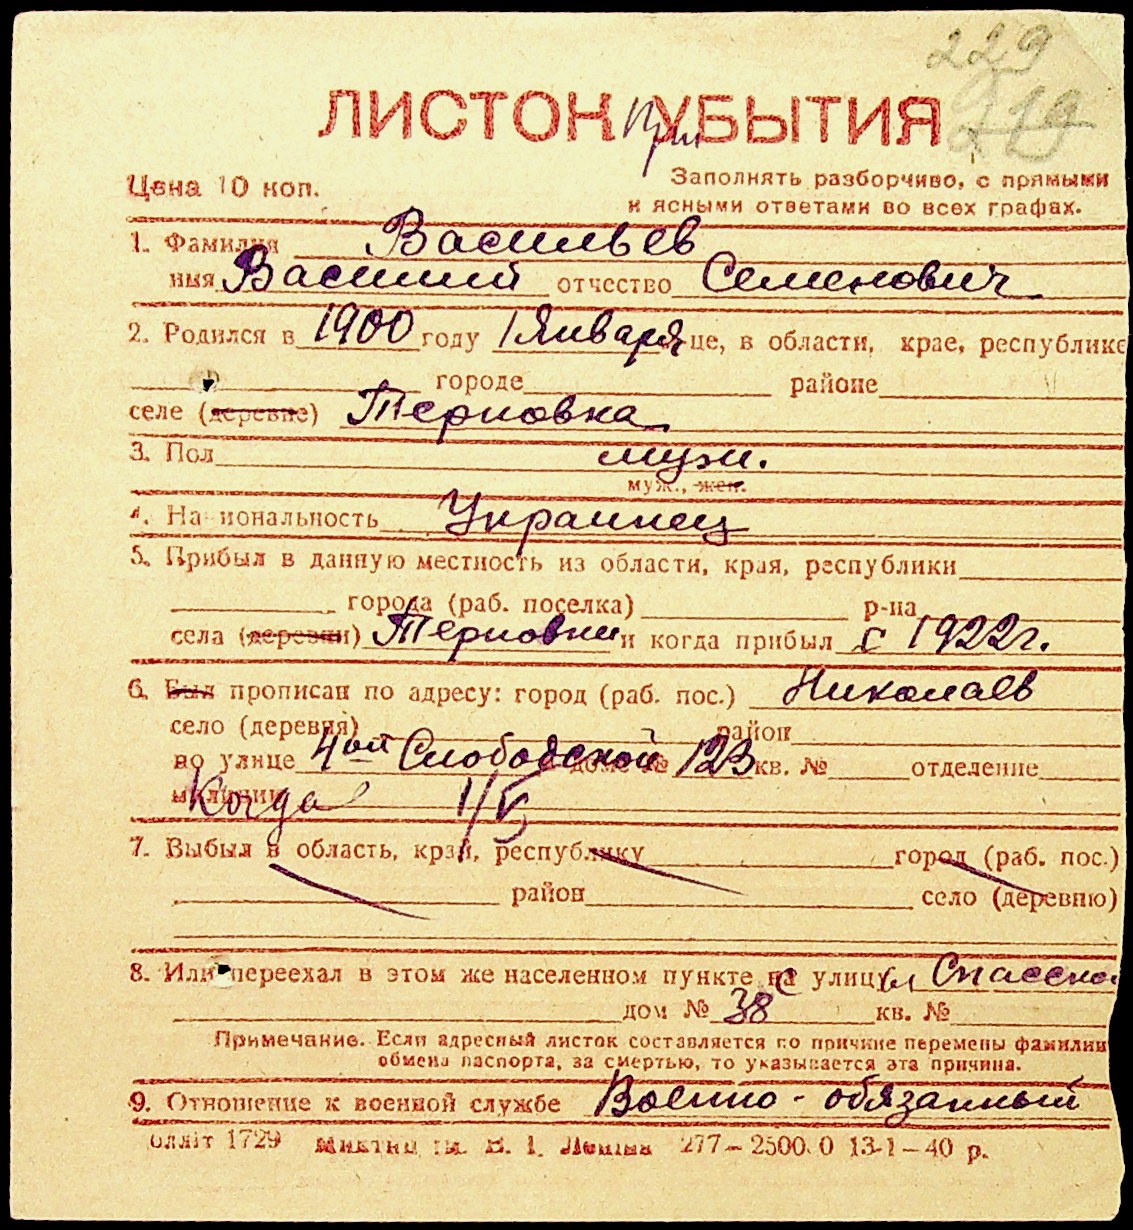 229
219
ЛИСТОК При УБЫТИЯ
Цена 10 коп.
Заполнять разборчиво, с прямыми
и ясными ответами во всех графах.
1. Фамилия Васильев
имя Василий отчество Семенович
2. Родился в 1900 году 1 Января це, в области, крае, республике
городе районе
селе (деревне) Терновка
3. Пол муж.
муж., жен.
4. Национальность Украинец
5. Прибыл в данную местность из области, края, республики
города (раб. поселка) р-на
села (деревни) Терновки и когда прибыл с 1922 г.
6. Был прописан по адресу: город (раб. пос.) Николаев
село (деревня) район
по улице 4ой Слободской доме № 123 кв. № отделение
милиции Когда 1/V
7. Выбыл в область, край, республику город (раб. пос.)
район село (деревню)
8. Или переехал в этом же населенном пункте с улицы Спасской
дом № 38 кв. №
Примечание. Если адресный листок составляется по причине перемены фамилии
обмена паспорта, за смертью, то указывается эта причина.
9. Отношение к военной службе Военно-обязанный
1729 В. І. Леніна 277–2500.0 13-1–40 р.